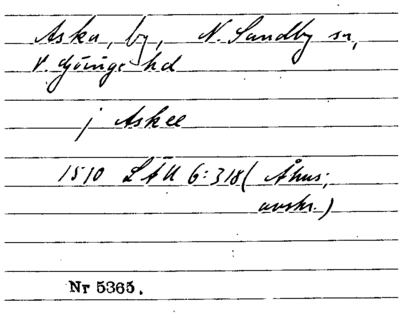 Aska, by, N. Sandby sn,
V. Göinge hd
j Askee
1510 LÄU 6:318 ( Åhus;
avskr.)
Nr 5365.